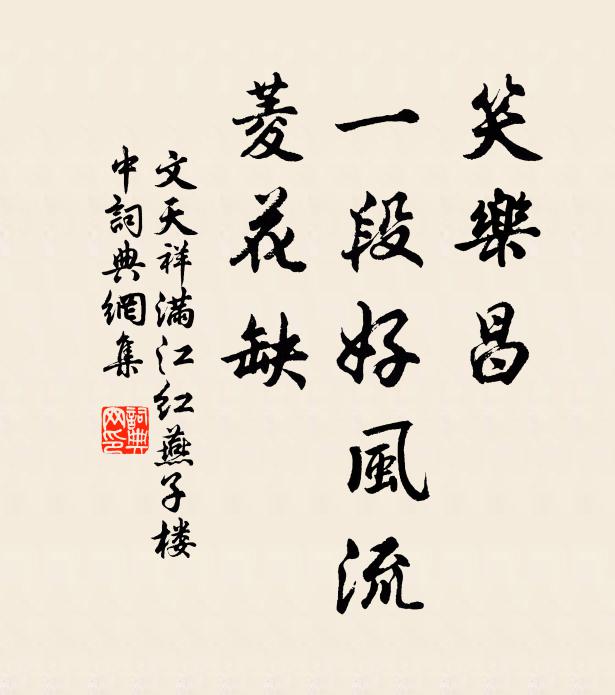 笑樂昌
一段好風流
菱花缺
文天祥满江红燕子楼
中詞典網集
詞典网印